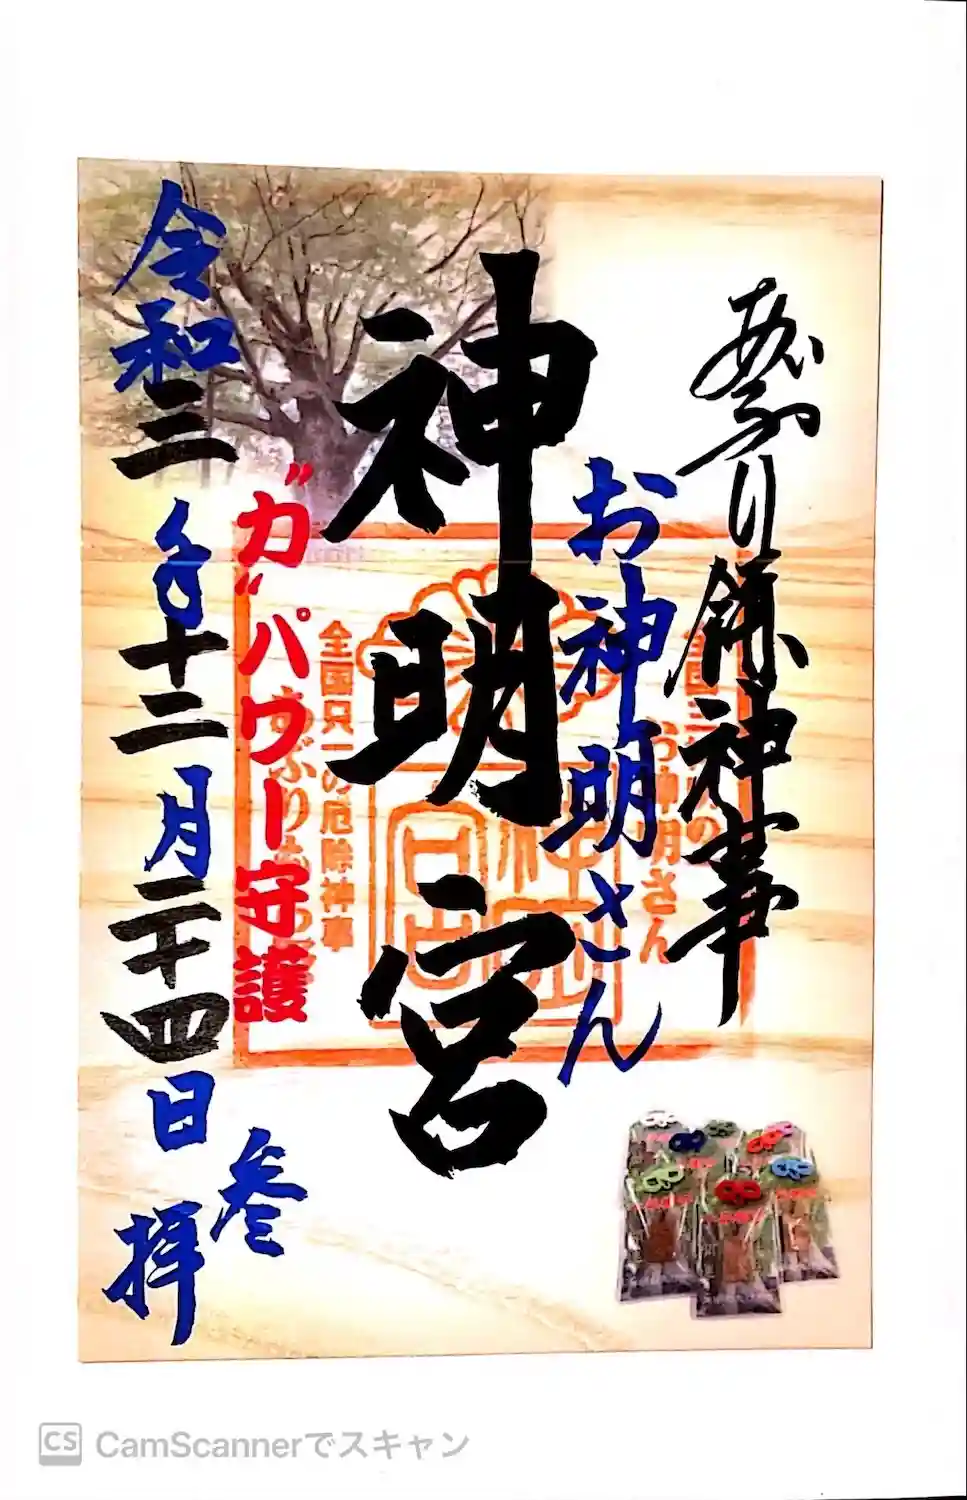 あぶり餅神事
お神明さん
神明宮
全国三社の
お神明さん
全国只一の厄除神事
あぶりもち
"力"パワー守護
令和三年十二月二十四日
参拝
CS CamScannerでスキャン